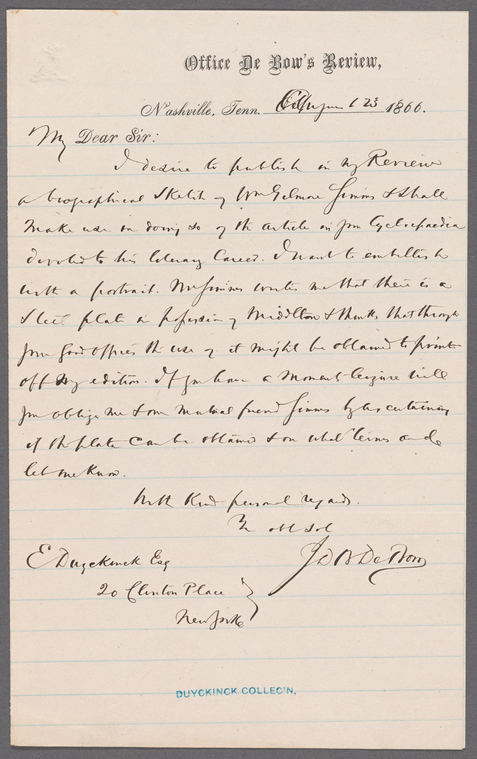 Office De Bow's Review,
Nashville, Tenn. 23 1866.
My Dear Sir:
I desire to publish in my Review
a biographical Sketch of Wm Gilmore Simms & shall
make use in doing so of the article in your Cyclopaedia
devoted to his literary career. I want to embellish
with a portrait. Mr Simms writes me that there is a
steel plate in possession of Middleton & thinks that through
your good offices the use of it might be obtained to print
off my edition. If you have a moment leizure will
you oblige me & our mutual friend Simms by ascertaining
if the plate can be obtained & on what terms and
let me know.
With Kind personal regards.
Yr obt svt
J D B De Bow
E Duyckinck Esq
20 Clinton Place
New York
DUYCKINCK COLLEC'N.